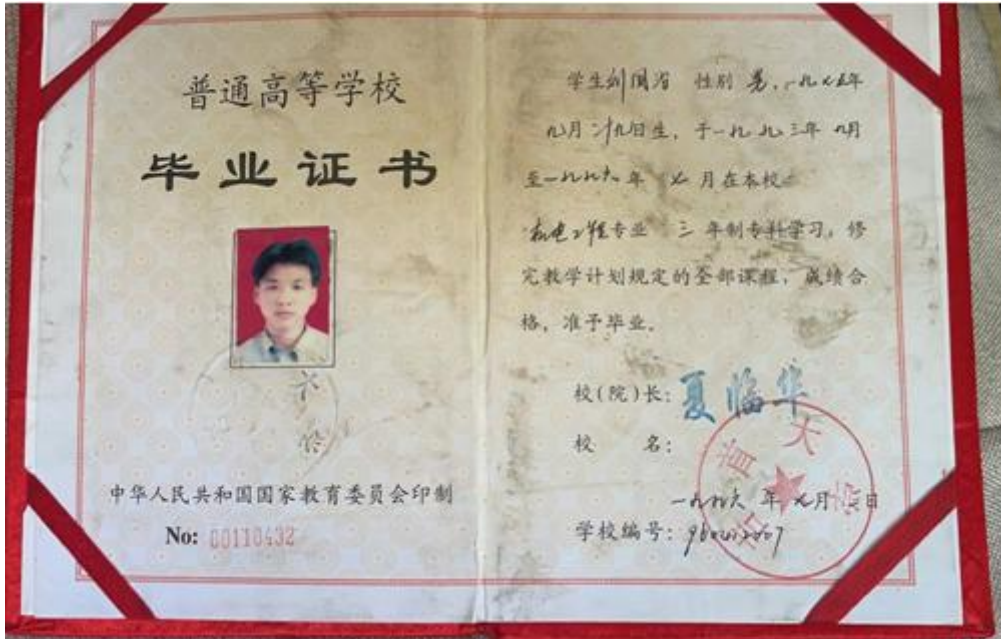 普通高等学校
毕业证书
中华人民共和国国家教育委员会印制
No: 00110432
学生刘国 性别 男，一九七五年
九月二十九日生，于一九九三年 九月
至一九九六年 七月在本校
机电工程专业 三 年制专科学习，修
完教学计划规定的全部课程，成绩合
格，准予毕业。
校(院)长：夏临华
校 名：
一九九六 年 七月 日
学校编号：